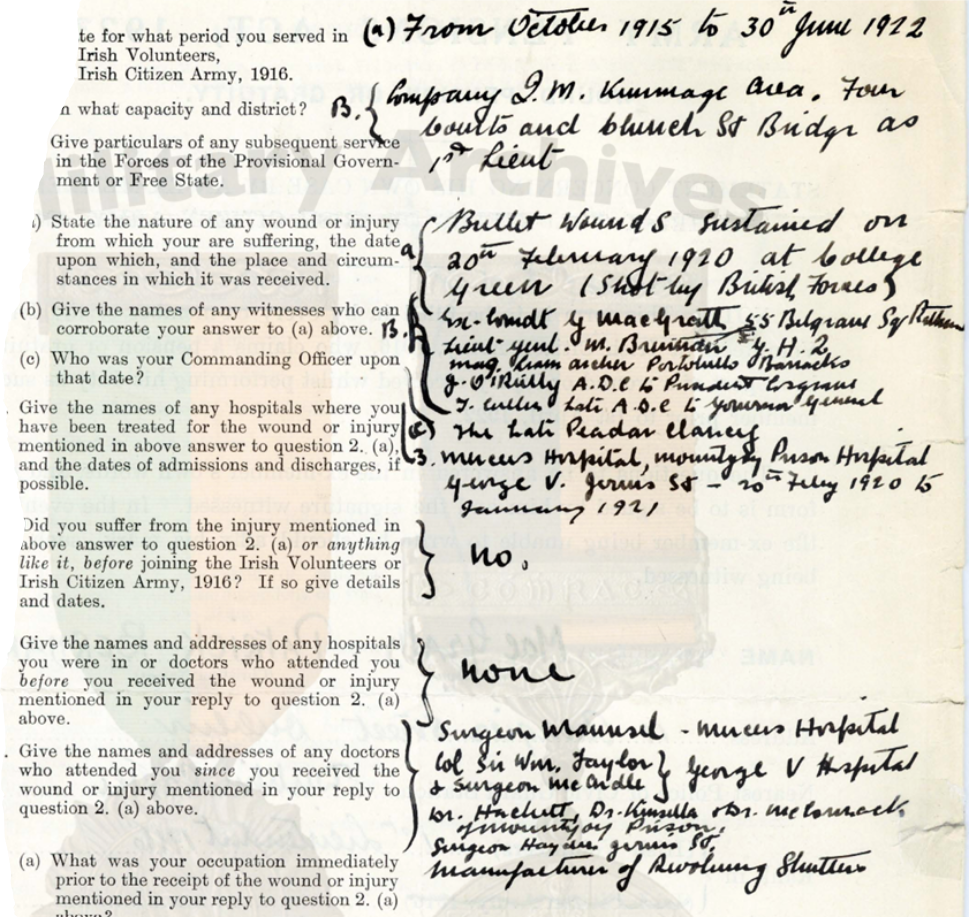 te for what period you served in
Irish Volunteers,
Irish Citizen Army, 1916.
(a) From October 1915 to 30th June 1922
n what capacity and district?
B. Company I. M. Kimmage area. Four
Courts and Church St Bridge as
1st Lieut
Give particulars of any subsequent service
in the Forces of the Provisional Govern-
ment or Free State.
Military Archives
) State the nature of any wound or injury
from which your are suffering, the date
upon which, and the place and circum-
stances in which it was received.
a Bullet Wounds sustained on
20th February 1920 at College
Green (Shot by British Forces)
(b) Give the names of any witnesses who can
corroborate your answer to (a) above.
B. Ex-Comdt G MacGrath 55 Belgrave Sq
Lieut Genl. M. Brennan G. H. Q
Maj. Liam Archer Portobello Barracks
J. O'Reilly A.D.C to President Cosgrave
T. Cullen Late A.D.C to Governor General
(c) Who was your Commanding Officer upon
that date?
(c) The Late Peadar Clancy
. Give the names of any hospitals where you
have been treated for the wound or injury
mentioned in above answer to question 2. (a),
and the dates of admissions and discharges, if
possible.
3. Mercers Hospital, Mountjoy Prison Hospital
George V. Jervis St - 20th Feby 1920 to
January 1921
Did you suffer from the injury mentioned in
above answer to question 2. (a) or anything
like it, before joining the Irish Volunteers or
Irish Citizen Army, 1916? If so give details
and dates.
No.
Give the names and addresses of any hospitals
you were in or doctors who attended you
before you received the wound or injury
mentioned in your reply to question 2. (a)
above.
None
. Give the names and addresses of any doctors
who attended you since you received the
wound or injury mentioned in your reply to
question 2. (a) above.
Surgeon Maunsel - Mercers Hospital
Col Sir Wm. Taylor
& Surgeon McArdle } George V Hospital
Dr. Hackett, Dr. Kinsella & Dr. McCormack
of Mountjoy Prison,
Surgeon Hayden Jervis St.
(a) What was your occupation immediately
prior to the receipt of the wound or injury
mentioned in your reply to question 2. (a)
above?
Manufacturer of Revolving Shutters